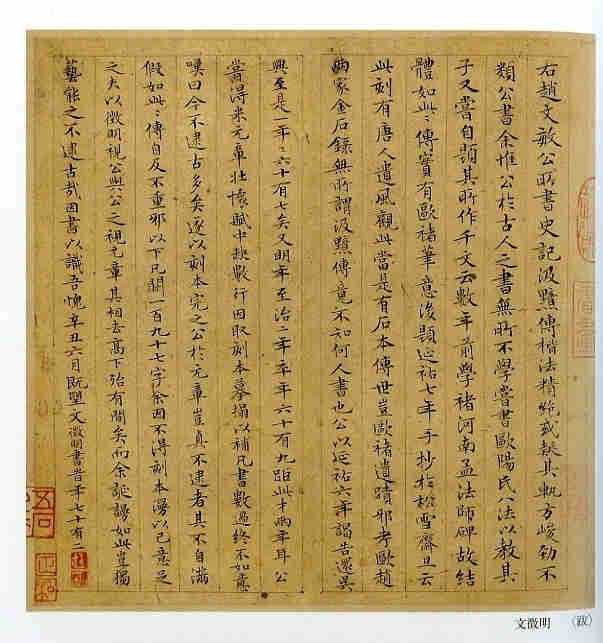 右趙文敏公所書史記汲黯傳楷法精絶或疑其軌方峻勁不
類公書余惟公於古人之書無所不學嘗書歐陽氏八法以教其
子又嘗自題其所作千文云數年前學褚河南孟法師碑故結
體如此〻傳實有歐褚筆意後題延祐七年手抄於松雪齋且云
此刻有唐人遺風觀此當是有石本傳世豈歐褚遺蹟邪考歐趙
兩家金石錄無所謂汲黯傳竟不知何人書也公以延祐六年謁告還吳
興至是一年〻六十有七矣又明年至治二年卒年六十有九距此才兩年耳公
嘗得米元章壯懷賦中缺數行因取刻本摹搨以補凡書數過終不如意
嘆曰今不逮古多矣遂以刻本完之公於元章豈真不逮者其不自滿
假如此〻傳自反不重邪以下凡闕一百九十七字余因不得刻本漫以己意足
之夫以徵明視公與公之視元章其相去高下殆有間矣而余誕謾如此豈獨
藝能之不逮古哉因書以識吾愧辛丑六月既望文徵明書時年七十有二
文徵明　(跋)